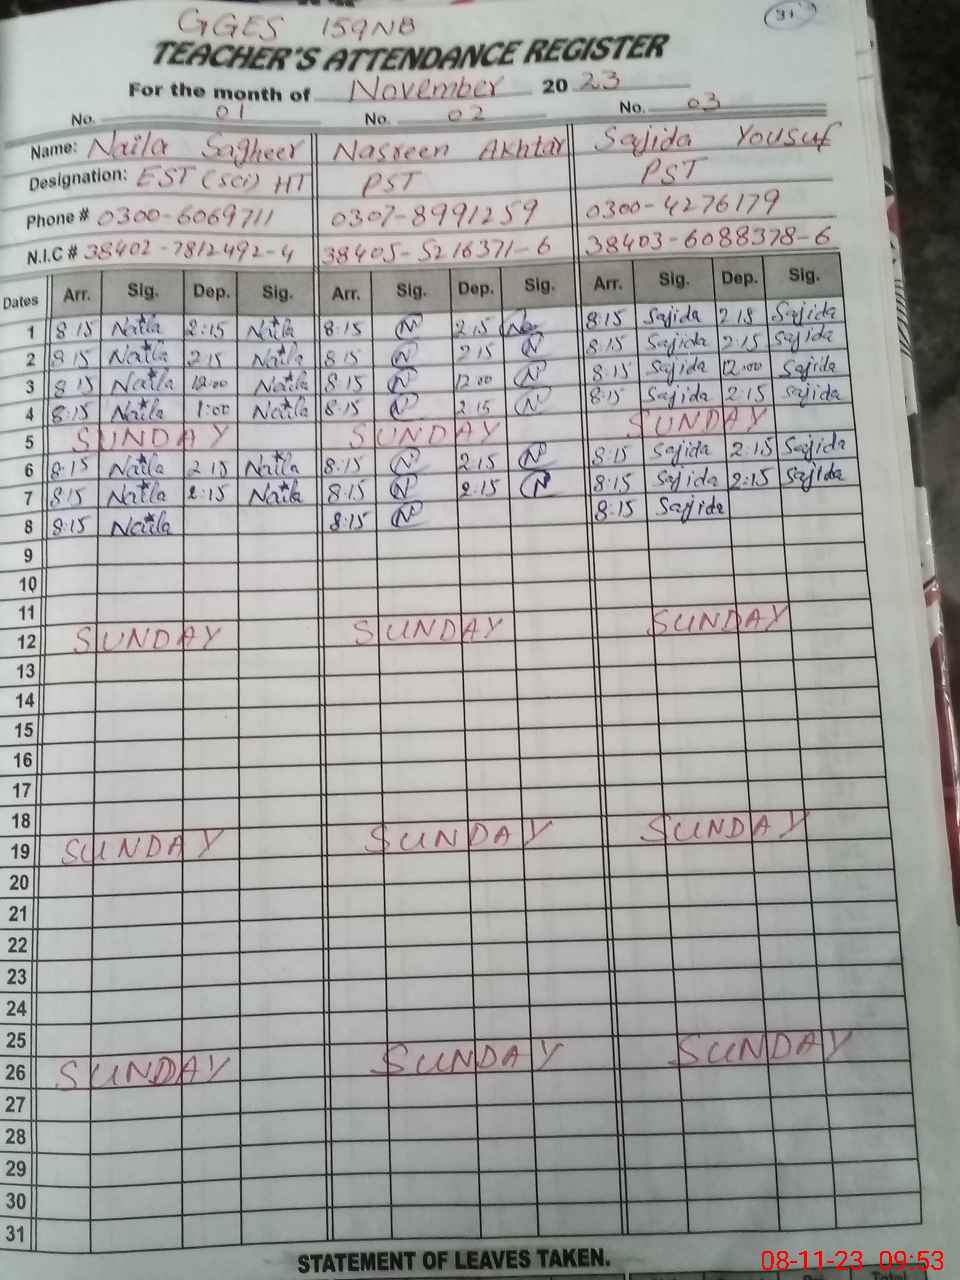 31
GGES 159NB
TEACHER'S ATTENDANCE REGISTER
For the month of November 2023
No. 01 No. 02 No. 03
Name: Naila Sagheer Nasreen Akhtar Sajida Yousuf
Designation: EST (Sci) HT PST PST
Phone # 0300-6069711 0307-8991259 0300-4276179
N.I.C # 38402-7812492-4 38405-5216371-6 38403-6088378-6
Dates Arr. Sig. Dep. Sig. Arr. Sig. Dep. Sig. Arr. Sig. Dep. Sig.
1 8:15 Naila 2:15 Naila 8:15 N 2.15 8:15 Sajida 2 15 Sajida
2 8 15 Naila 2 15 Naila 8 15 N 2 15 N 8 15 Sajida 2:15 Sajida
3 8 15 Naila 12:00 Naila 8:15 N 12 00 N 8:15 Sajida 12:00 Sajida
4 8:15 Naila 1:00 Naila 8:15 N 2.15 N 8:15 Sajida 2:15 Sajida
5 SUNDAY SUNDAY SUNDAY
6 8:15 Naila 2 15 Naila 8:15 N 2:15 N 8:15 Sajida 2:15 Sajida
7 8:15 Naila 2:15 Naila 8:15 N 2:15 N 8:15 Sajida 2:15 Sajida
8 8:15 Naila 8:15 N 8:15 Sajida
9
10
11
12 SUNDAY SUNDAY SUNDAY
13
14
15
16
17
18
19 SUNDAY SUNDAY SUNDAY
20
21
22
23
24
25
26 SUNDAY SUNDAY SUNDAY
27
28
29
30
31
STATEMENT OF LEAVES TAKEN.
08-11-23 09:53